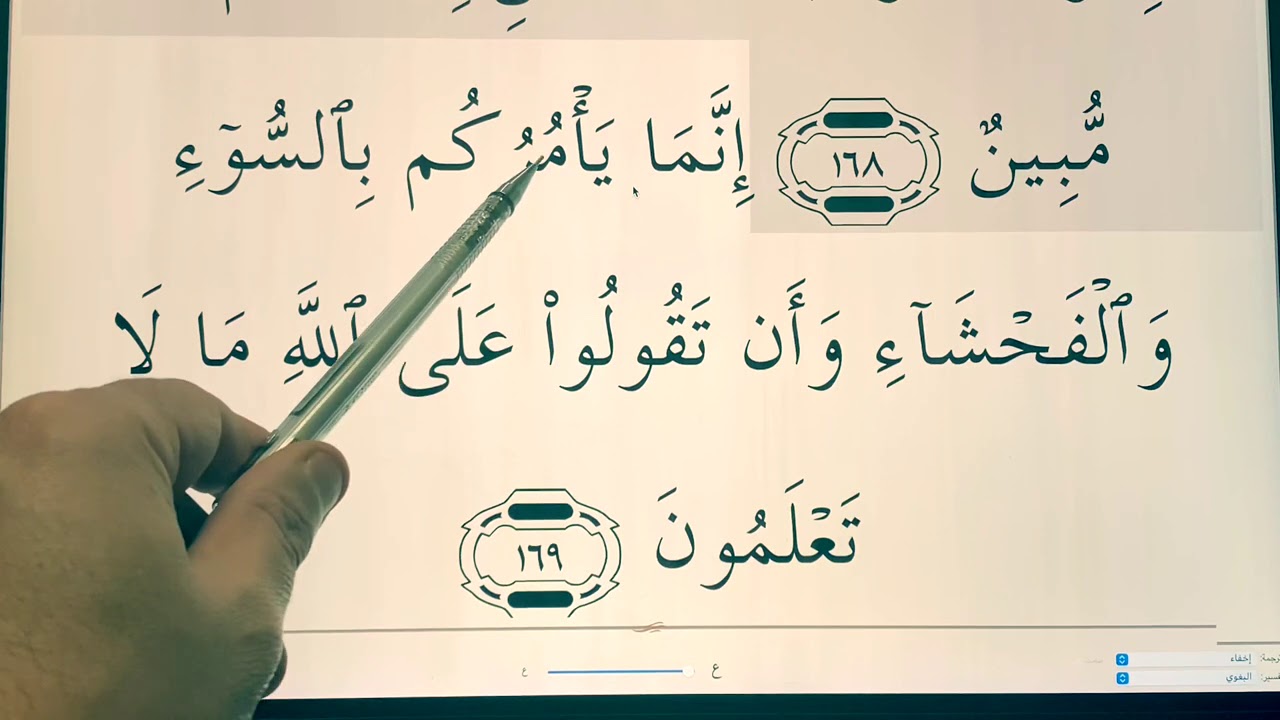 مُّبِينٌ ١٦٨ إِنَّمَا يَأْمُرُكُم بِٱلسُّوٓءِ
وَٱلْفَحْشَآءِ وَأَن تَقُولُوا۟ عَلَى ٱللَّهِ مَا لَا
تَعْلَمُونَ ١٦٩
ع ع
إخفاء
البغوي